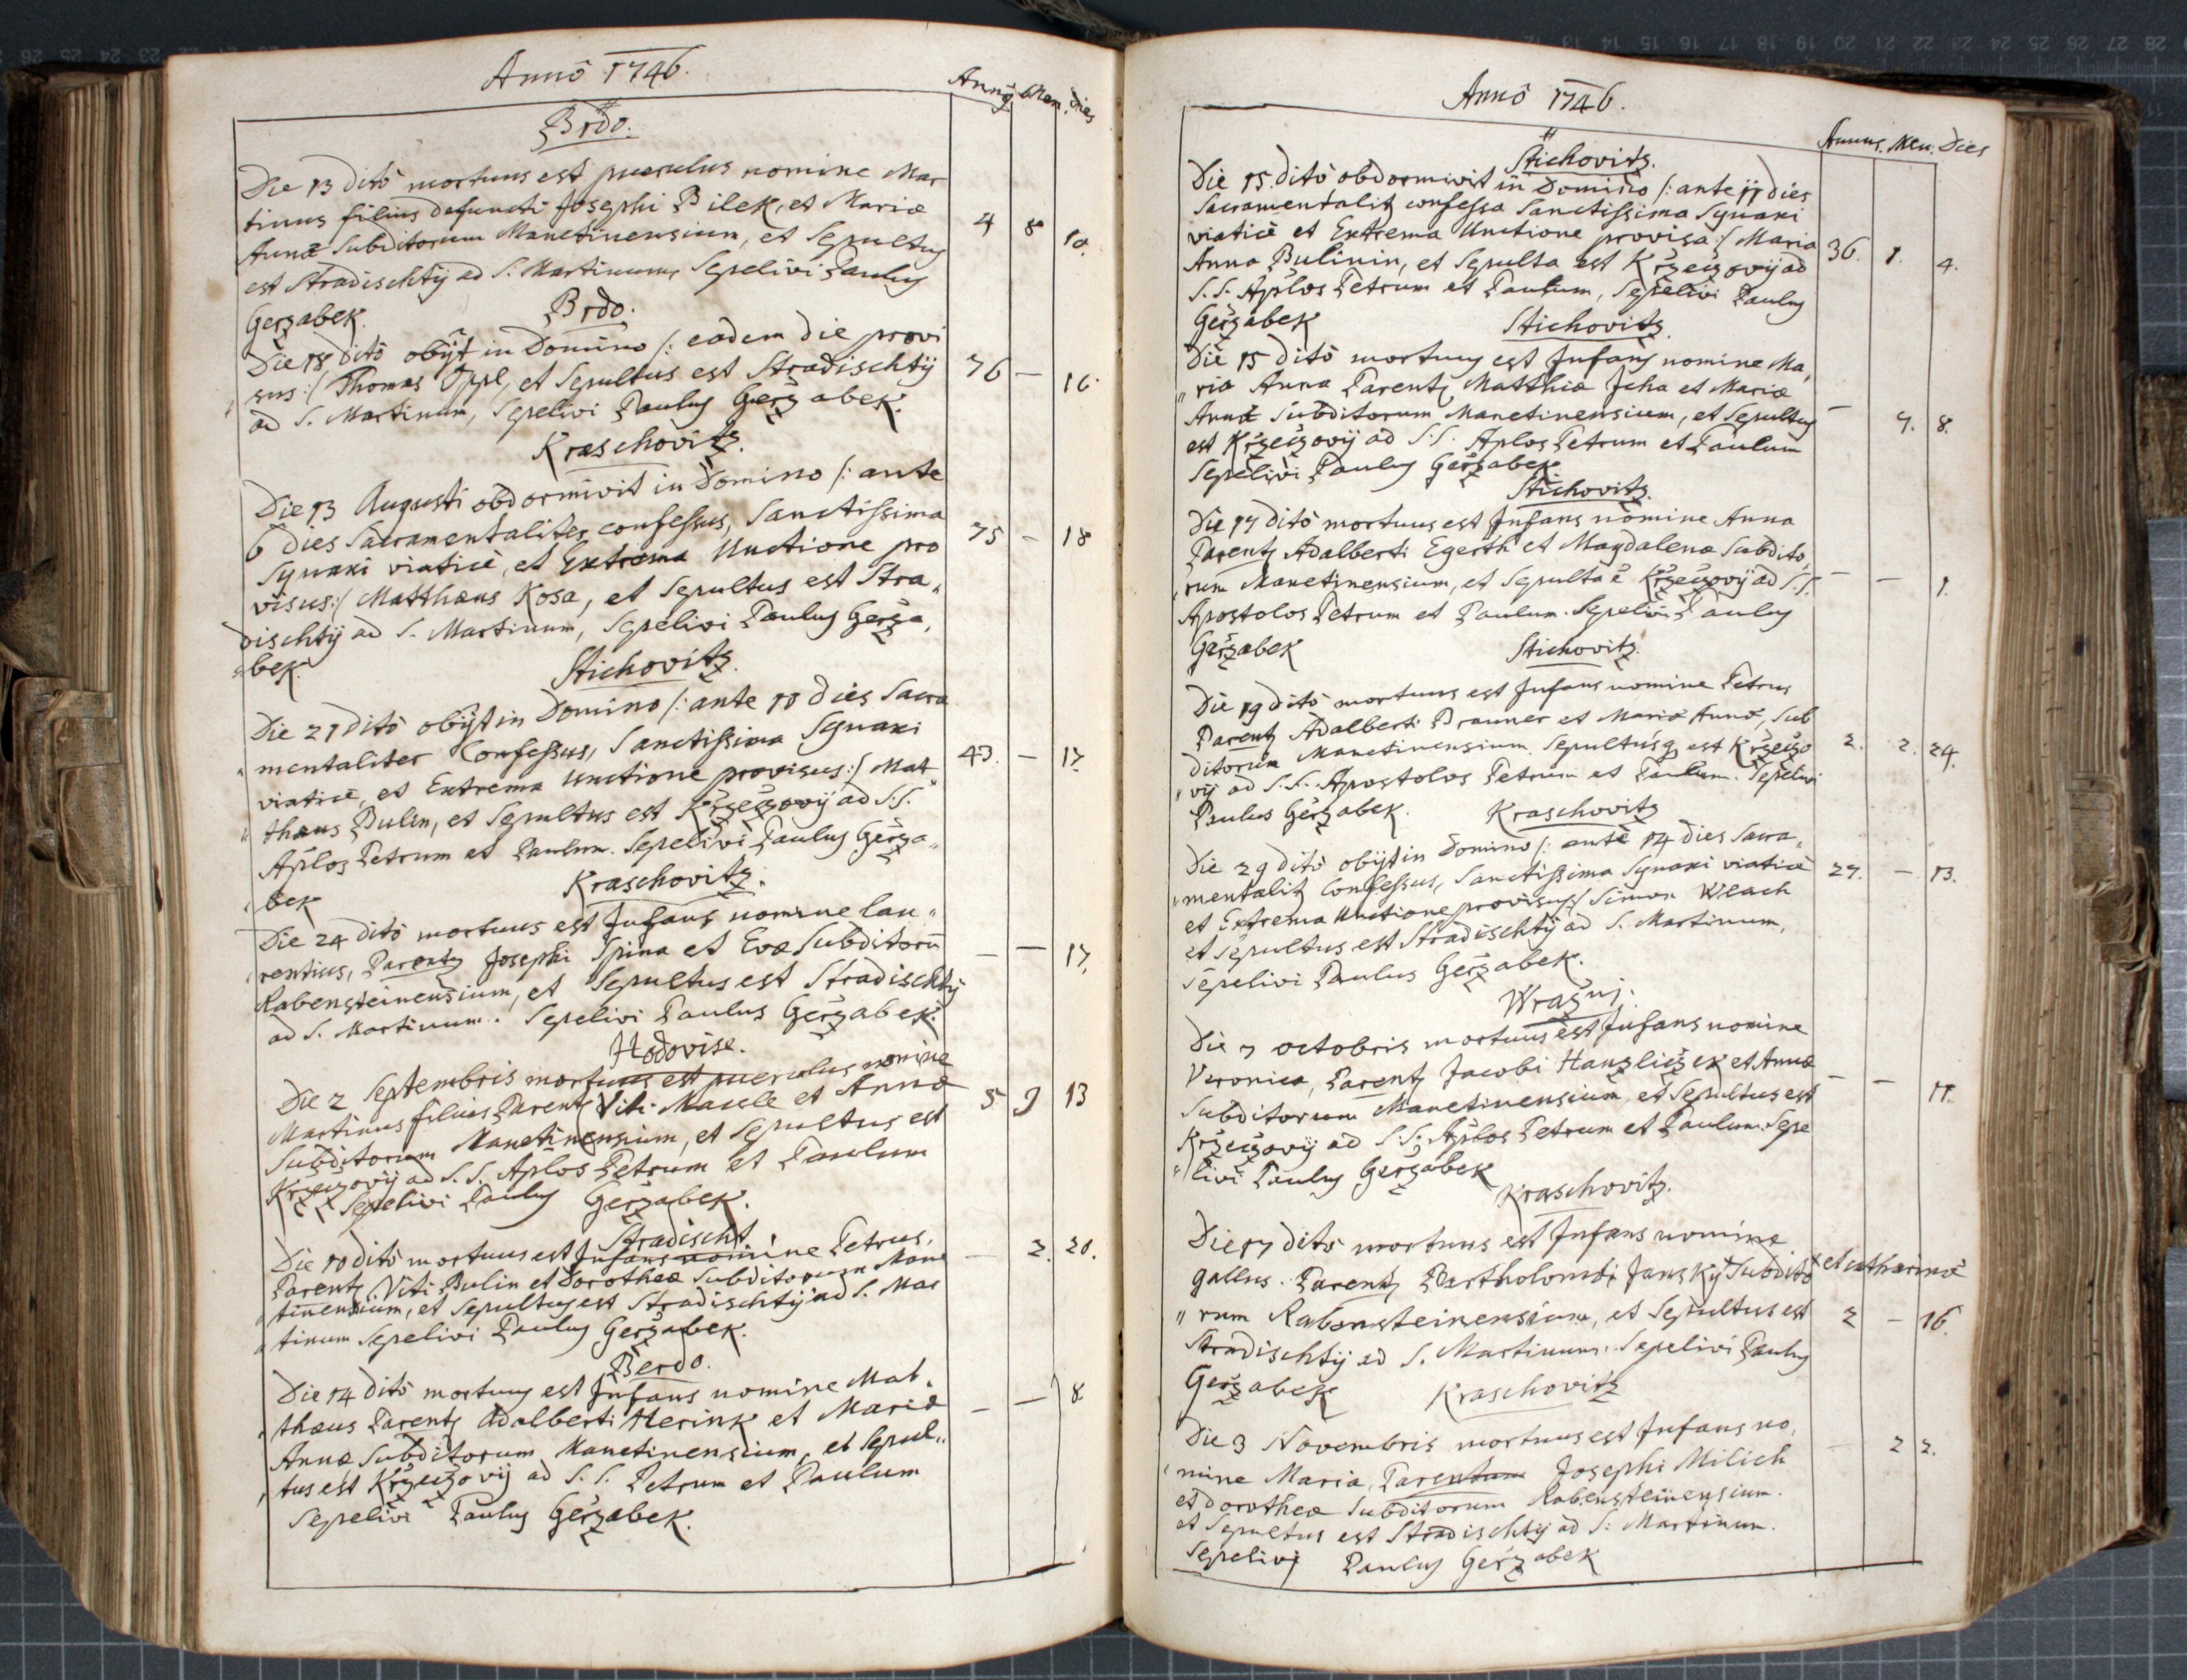 Annô 1746.
Annus Men. Dies
Brdo.
Die 13 ditô mortuus est puerulus nomine Mar
tinus filius defuncti Josephi Bilek, et Mariæ
Annæ Subditorum Manetinensium, et Sepultus
4 8 10.
est Stradischtij ad S. Martinum, Sepelivi Paulus
Gerzabek.
Brdo.
Die 18 ditô obijt in Domino /: eadem die provi
sus :/ Thomas Oppl, et Sepultus est Stradischtij
76 — 16.
ad S. Martinum, Sepelivi Paulus Gerzabek.
Kraschovitz.
Die 13 Augusti obdormivit in Domino /: ante
6 dies Sacramentaliter confessus, Sanctissima
Synaxi viaticè, et Extrema Unctione pro
75 — 18
visus :/ Matthæus Kosa, et Sepultus est Stra„
dischtij ad S. Martinum, Sepelivi Paulus Gerza„
„bek.
Stichovitz.
Die 21 ditô obijt in Domino /: ante 10 dies Sacra
„mentaliter Confessus, Sanctissima Synaxi
viaticè, et Extrema Unctione provisus :/ Mat
43. — 17.
„thæus Bulin, et Sepultus est Krzeczovij ad S.S.
Aplos Petrum et Paulum. Sepelivi Paulus Gerza„
„bek
Kraschovitz.
Die 24 ditô mortuus est Infans nomine lau„
„rentius, Parent. Josephi Spina et Evæ Subditorū
Rabensteinensium, et Sepultus est Stradischtij
— — 17.
ad S. Martinum. Sepelivi Paulus Gerzabek.
Hodovise.
Die 2 Septembris mortuus est puerulus nomine
Martinus filius Parent. Viti Macele et Annæ
5 9 13
Subditorum Manetinensium, et Sepultus est
Krzeczovij ad S.S. Aplos Petrum et Paulum
Sepelivi Paulus Gerzabek.
Stradischt.
Die 10 ditô mortuus est Infans nomine Petrus,
Parent. Viti Bulin et Dorotheæ Subditorum Mane
— 2. 20.
„tinensium, et Sepultus est Stradischtij ad S. Mar
„tinum Sepelivi Paulus Gerzabek.
Berdo.
Die 14 ditô mortuus est Infans nomine Mat„
„thæus Parent. Adalberti Herink et Mariæ
— — 8
Annæ Subditorum Manetinensium, et Sepul„
„tus est Krzeczovij ad S.S. Petrum et Paulum
Sepelivi Paulus Gerzabek.
Annô 1746.
Annus. Men. Dies
Stichovitz.
Die 15. ditô obdormivit in Domino /: ante 11 dies
Sacramentalit. confessa Sanctissima Synaxi
viaticè et Extrema Unctione provisa :/ Maria
36. 1. 4.
Anna Bulinin, et Sepulta est Krzeczovij ad
S.S. Aplos Petrum et Paulum, Sepelivi Paulus
Gerzabek
Stichovitz.
Die 15 ditô mortuus est Infans nomine Ma„
„ria Anna Parent. Matthiæ Jcha et Mariæ
Annæ Subditorum Manetinensium, et Sepultus
— 7. 8.
est Krzeczovij ad S.S. Aplos Petrum et Paulum
Sepelivi Paulus Gerzabek
Stichovitz.
Die 17 ditô mortuus est Infans nomine Anna
Parent. Adalberti Egerth et Magdalenæ Subdito„
„rum Manetinensium, et Sepulta ē Krzeczovij ad S.S.
— — 1.
Apostolos Petrum et Paulum. Sepelivi Paulus
Gerzabek
Stichovitz.
Die 19 ditô mortuus est Infans nomine Petrus
Parent. Adalberti Brauner et Mariæ Annæ, Sub
ditorum Manetinensium Sepultusq. est Krzeczo
2. 2. 24.
„vij ad S.S. Apostolos Petrum et Paulum. Sepelivi
Paulus Gerzabek.
Kraschovitz
Die 29 ditô obijt in Domino /: ante 14 dies Sacra„
„mentalit. Confessus, Sanctissima Synaxi viaticè
27. — 13.
et Extrema Unctione provisus :/ Simon Wlach
et Sepultus est Stradischtij ad S. Martinum,
Sepelivi Paulus Gerzabek.
Wražnj.
Die 7 octobris mortuus est Infans nomine
Veronica, Parent. Jacobi Hanzliczek et Annæ
— — 11.
Subditorum Manetinensium, et Sepultus est
Krzeczovij ad S.S. Aplos Petrum et Paulum. Sepe
„livi Paulus Gerzabek
Kraschovitz.
Die 17 ditô mortuus est Infans nomine
gallus. Parent. Bartholomæi Jansky Subdito et catharinæ
„rum Rabensteinensium, et Sepultus est
2 — 16.
Stradischtij ad S. Martinum. Sepelivi Paulus
Gerzabek
Kraschovitz
Die 3 Novembris mortuus est Infans no„
„mine Maria, Parentum Josephi Milich
— 2 2.
et dorotheæ Subditorum Rabensteinensium.
et Sepultus est Stradischtij ad S. Martinum.
Sepelivi Paulus Gerzabek